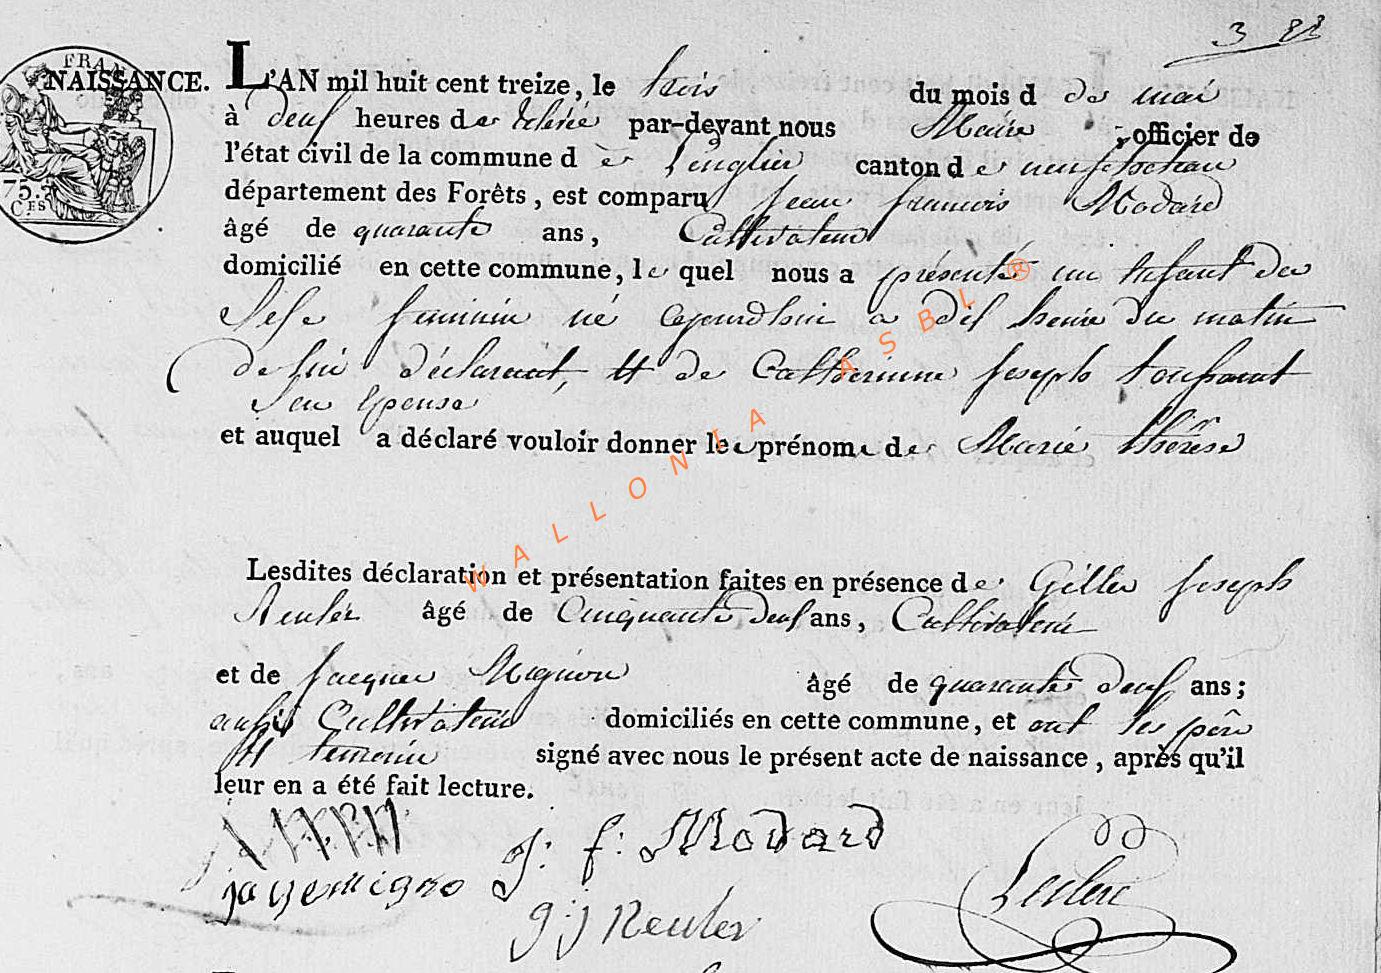 3
FRAN
NAISSANCE.
75.
CES
L'AN mil huit cent treize, le trois du mois d de mai
à deux heures de relevée par-devant nous Maire officier de
l'état civil de la commune d e Longlier canton de neufchateau
département des Forêts, est comparu jean françois Modard
âgé de quarante ans, Cultivateur
domicilié en cette commune, le quel nous a présenté un Enfant du
Sexe feminin né aujourdhui a dix heure du matin
de lui déclarant, et de Catherinne joseph toussaint
Son Epouse
et auquel a déclaré vouloir donner les prénoms de Marie thérèse
Lesdites déclaration et présentation faites en présence de Gillis joseph
Reuler âgé de Cinquante deux ans, Cultivateur
et de jacques Mignon âgé de quarante deux ans;
aussi Cultivateur domiciliés en cette commune, et ont les père
et temoin signé avec nous le présent acte de naissance, après qu'il
leur en a été fait lecture.
j: f: Modard
g: j Reuler
Leclerc
WALLONIA ASBL ®